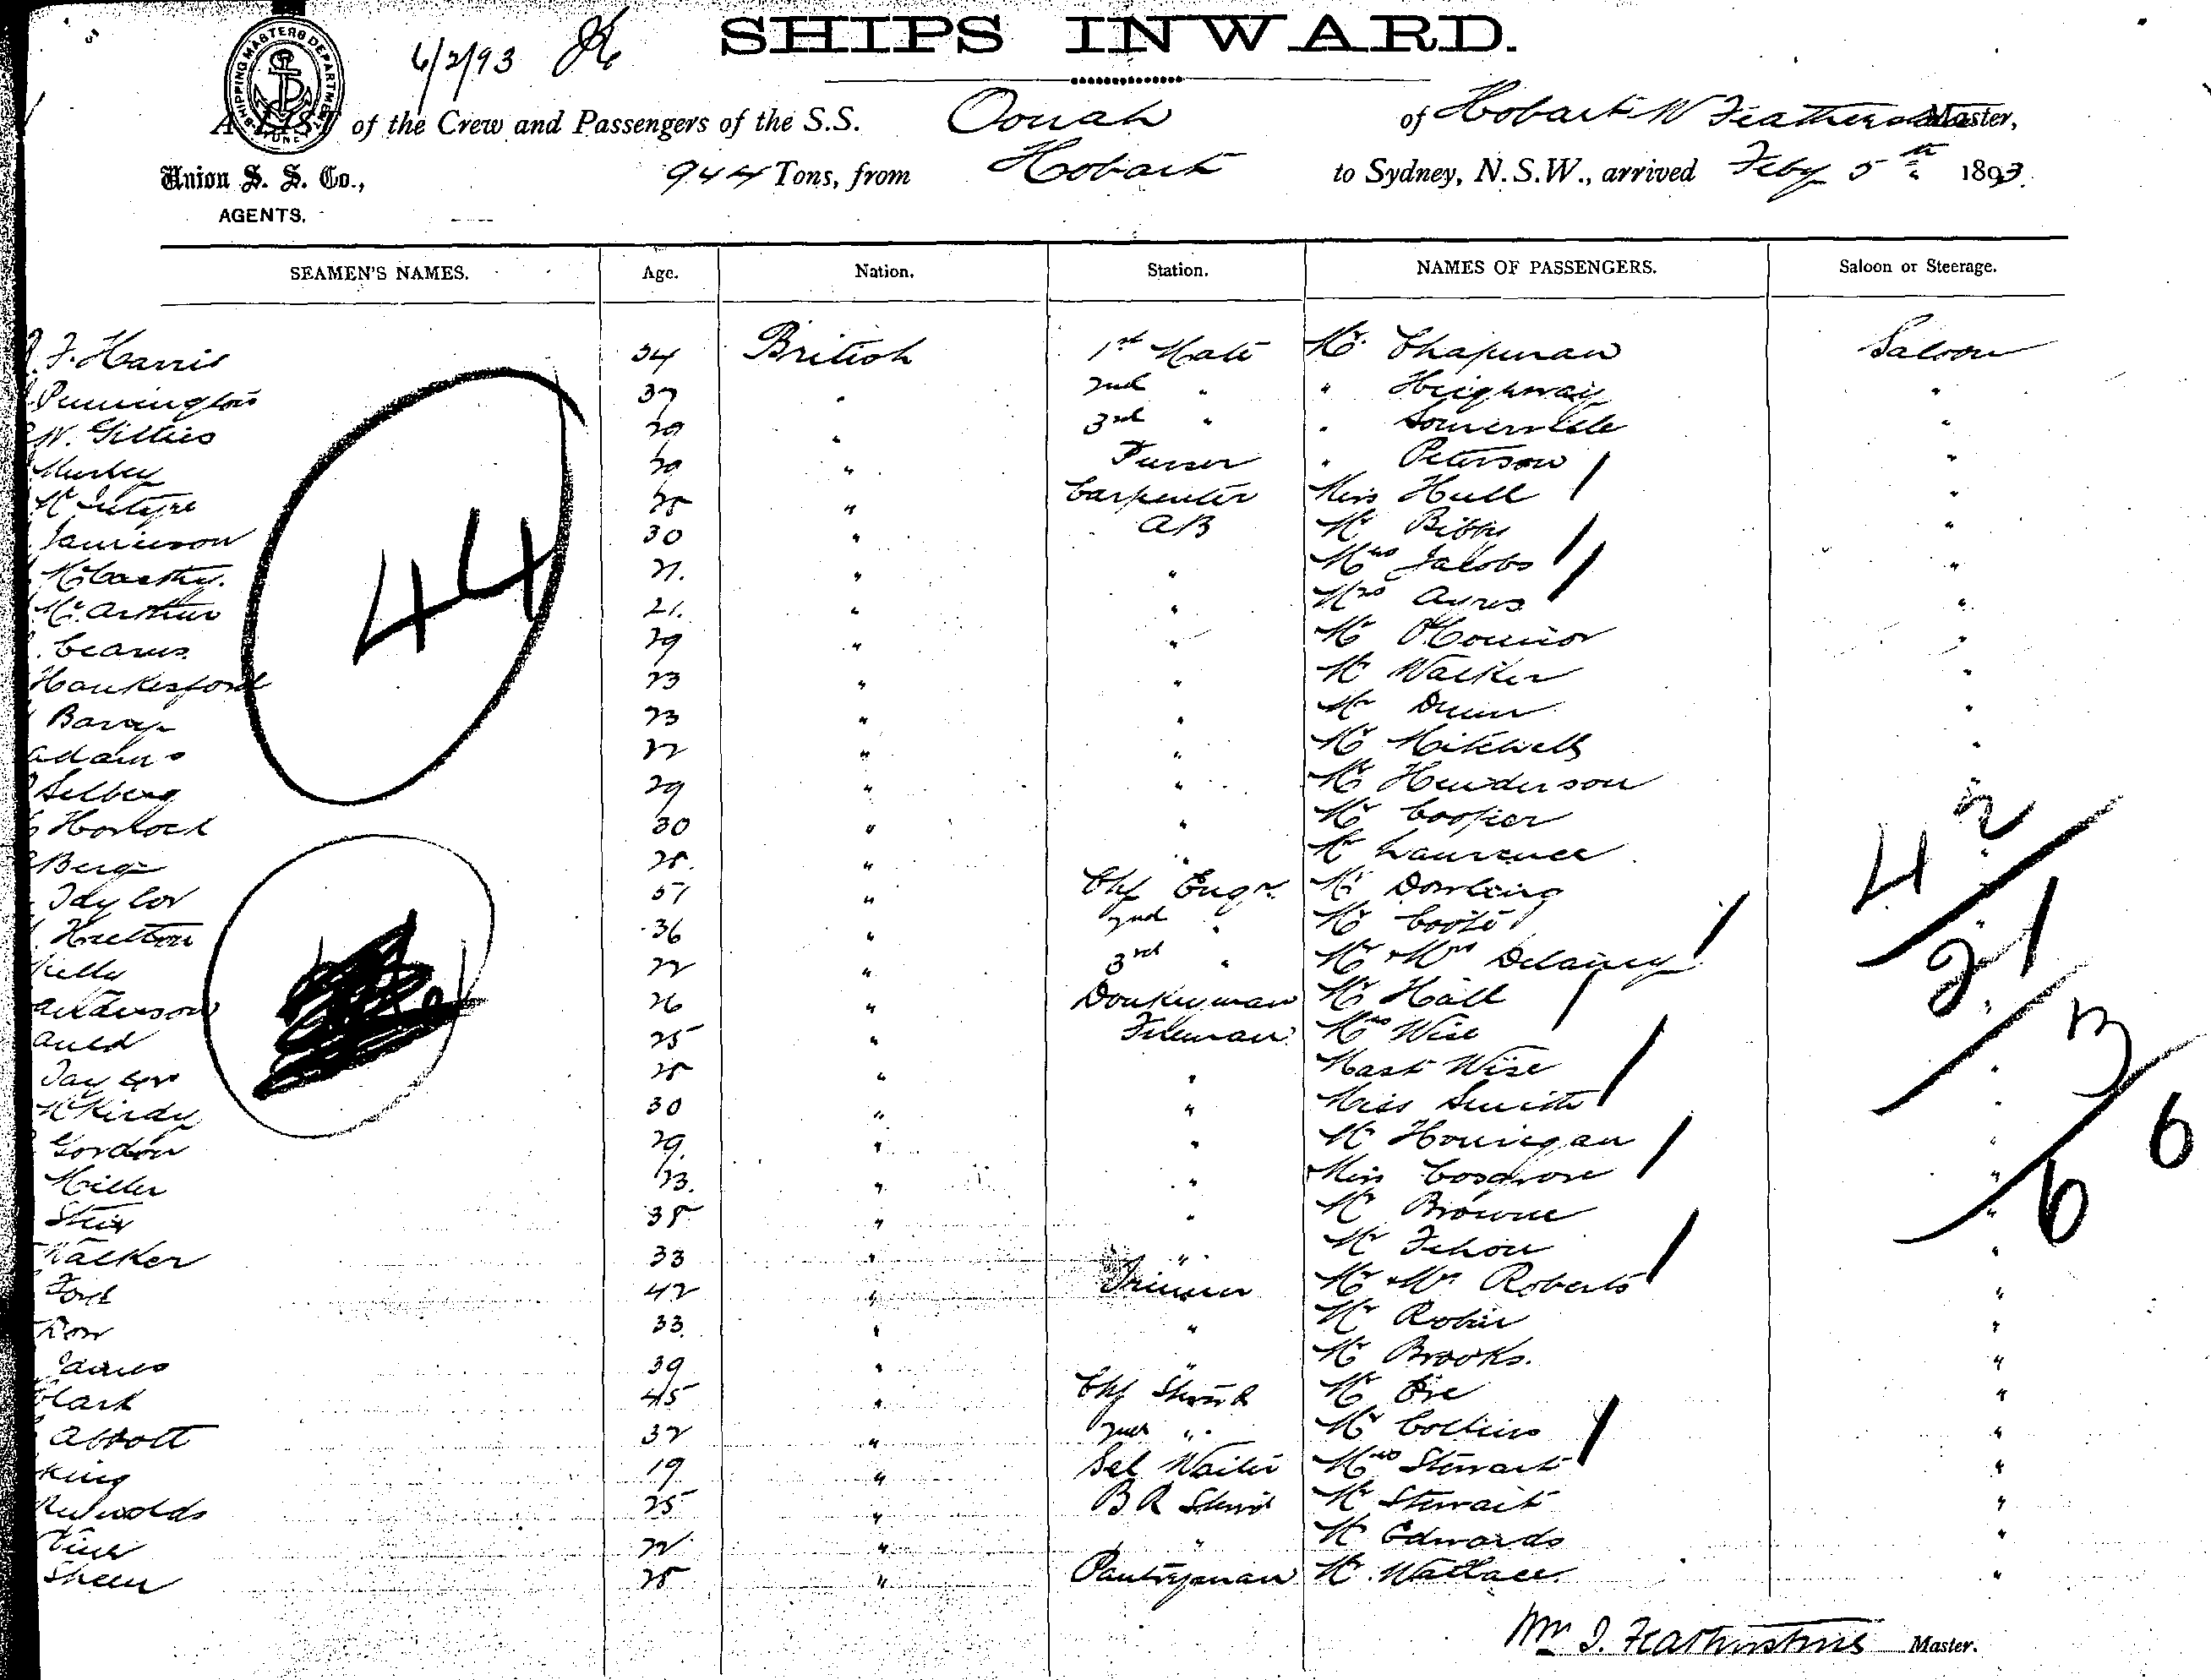 SHIPS INWARD.
6/2/93
SHIPPING MASTERS DEPARTMENT
A LIST of the Crew and Passengers of the S.S. Oonah of Hobart W Featherstone Master,
Union S. S. Co., AGENTS.
944 Tons, from Hobart to Sydney, N.S.W., arrived Feby 5th 1893.
SEAMEN'S NAMES. Age. Nation. Station. NAMES OF PASSENGERS. Saloon or Steerage.
F. Harris 34 British 1st Mate Mr. Chapman Saloon
Pennington 37 " 2nd " " Heighway "
W. Gillies 29 " 3rd " " Somerville "
Murley " Purser " Peterson "
McIntyre 25 " Carpenter Miss Hull "
Jamieson 30 " AB Mr Bibby "
McCarthy. 21. " " Mrs Jacobs "
McArthur 21. " " Mrs Ayres "
Cearns 29 " " Mr O'Connor "
Hankesford 23 " " Mr Walker "
23 " " Mr Dunn "
Adams 22 " " Mr Mitchell "
Selberg 29 " " Mr Henderson "
Horlock 30 " " Mr Cooper "
Berg 25. " " Mr Lawrence "
Taylor 51 " Chf Engr. Mr Dowling "
Hutton 36 " 2nd " Mr Coote "
Kelly 22 " 3rd " Mr & Mrs Delaney "
Anderson 26 " Donkeyman Mr Hall "
Auld 25 " Fireman Mrs Wise "
Taylor 25 " " Mast Wise "
McKirdy 30 " " Miss Smith "
Gordon 29. " " Mr Honingan "
Miller 23. " " Miss Cosgrove "
" " Mr Browne "
Walker 33 " " Mr Fehon "
Ford 42 " Trimmer Mr & Mrs Roberts "
Row 33 " " Mr Robin "
39 " " Mr Brooks. "
Clark 45 " Chf Stewd Mr "
Abbott 32 " 2nd " Mr Collins "
King 19 " Sal Waiter Mrs Stewart "
Reynolds 25 " B R Stewd Mr Stewart "
22 " " Mr Edwards "
Sheen 25 " Pantryman Mr Wallace. "
44
42
21
3
6
6
Wm J. Featherstone Master.